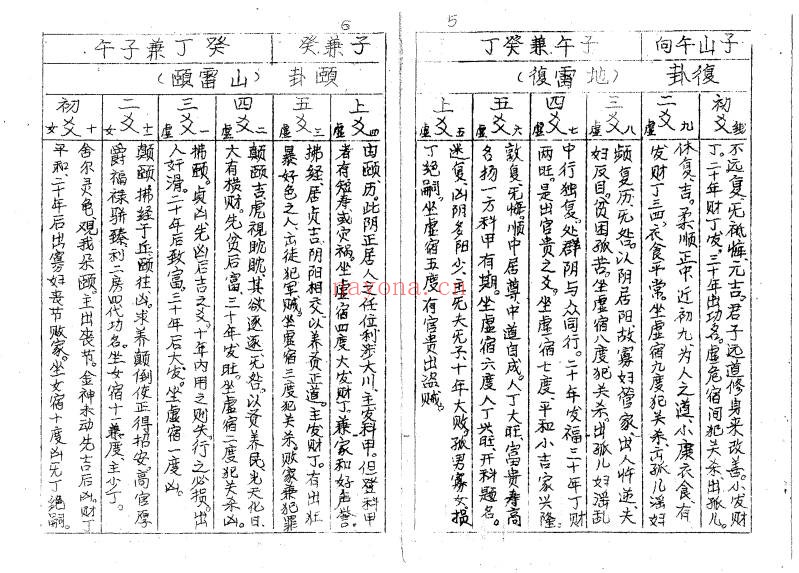 5
子山午向
子午兼癸丁
復卦
（地雷復）
初爻
不远复，无祗悔，元吉。君子远道修身来改善。小发财
丁。二十年财丁发。三十年出功名。虚危宿间犯关杀出孤儿。
二爻
虚九
休复，吉。柔顺正中，近初九为人之道、小康衣食有
发财丁三四，衣食平常。坐虚宿九度犯关杀，出孤儿淫妇
三爻
虚八
频复，历，无咎。以阴居阳故寡妇管家，出人忤逆、夫
妇反目。贫困孤苦。坐虚宿八度犯关杀。出孤儿妇淫乱
四爻
虚七
中行独复。处群阴与众同行。二十年发福三十年丁财
两旺。是出官贵之爻。坐虚宿七度，平和小吉家兴隆。
五爻
虚六
敦复，无悔。顺中居尊中道自成。人丁大旺，富贵寿高
名扬一方科甲有期。坐虚宿六度人丁兴旺，开科题名。
上爻
虚五
迷复，凶，阴名阳少，主死夫无子，十年大败，孤男寡女，损
丁绝嗣。坐虚宿五度，有官贵出盗贼。
6
子兼癸
癸丁兼子午
頤卦
（山雷頤）
上爻
虚四
由颐历。此阴正居人臣之任位利涉大川。主发科甲。但登科甲
者有短寿或灾祸。坐虚宿四度大发财丁，兼家和好声誉。
五爻
虚三
拂经居贞吉，阴阳相交，以养贤正道。主发财丁。有出狂
暴好色之人，出徒犯军贼。坐虚宿三度犯关杀。败家兼犯罪
四爻
虚二
颠颐吉虎视眈眈其欲逐逐，无咎。以贤养民，光天化日、
大有横财。先贫后富，三十年发旺坐虚宿二度犯关杀凶。
三爻
虚一
拂颐。贞凶先凶后吉之爻。十年内用之则失，行之必损。出
人奸滑。二十年后致富，三十年后大发。坐虚宿一度凶。
二爻
女十一
颠颐拂经于丘颐往凶。求养颠倒使正得招安，高官厚
爵福禄骈臻，利二房四代功名。坐女宿十一兼度，主少丁。
初爻
女十
舍尔灵龟，观我朵颐。主出丧节。金神木动先吉后凶。财丁
平和，二十年后出寡妇丧节败家。坐女宿十度凶死丁绝嗣。
nayona.cn